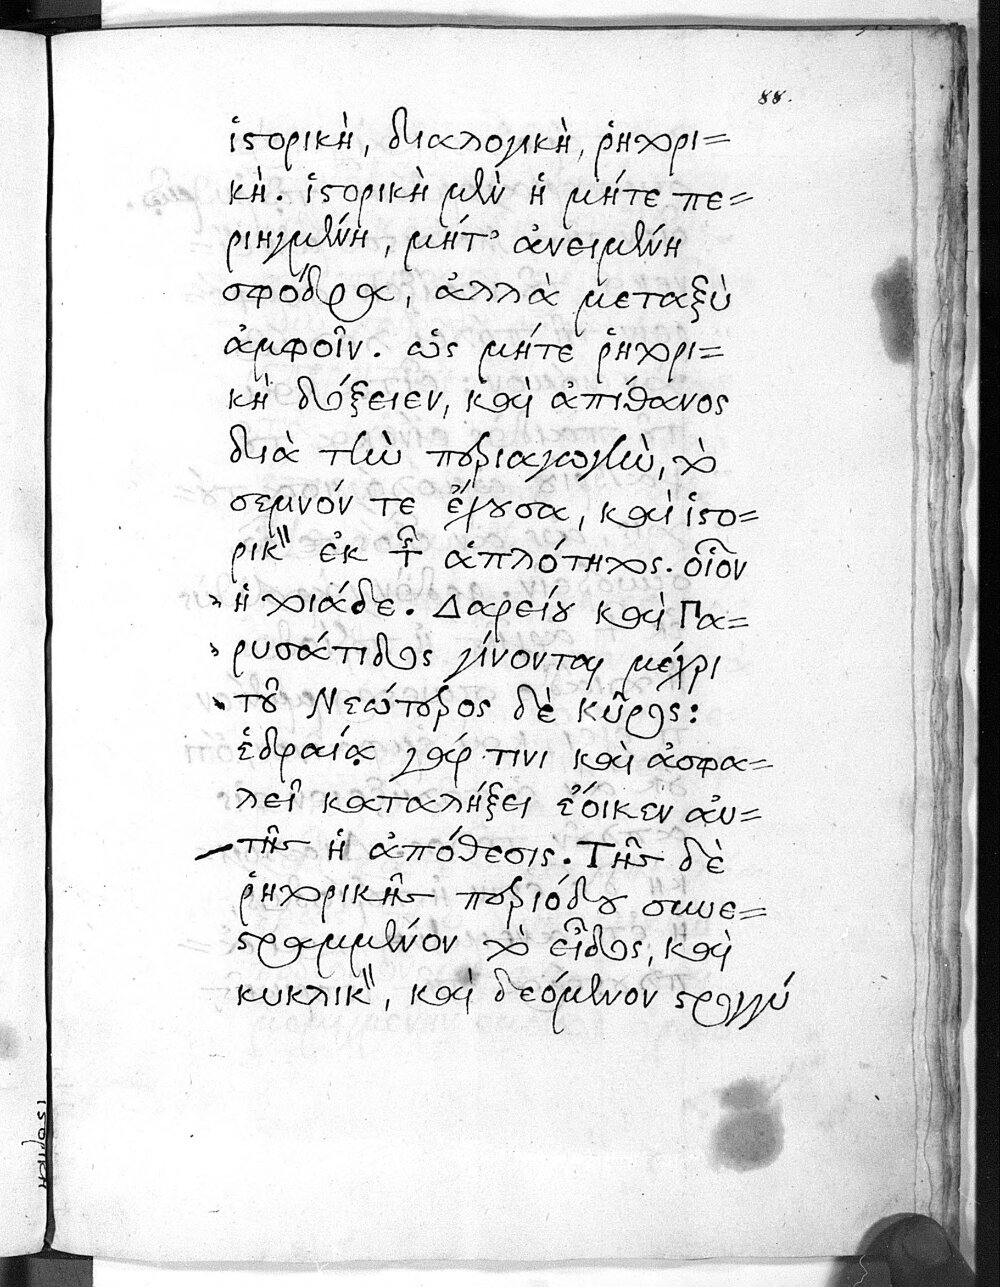 88.
ἱστορικὴ, διαλογικὴ, ῥητορι=
κὴ. ἱστορικὴ μὲν ἡ μήτε πε=
ριηγμένη, μήτ' ἀνειμένη
σφόδρα, ἀλλὰ μεταξὺ
ἀμφοῖν. ὡς μήτε ῥητορι=
κὴ δόξειεν, καὶ ἀπίθανος
διὰ τὴν περιαγωγὴν, τὸ
σεμνόν τε ἔχουσα, καὶ ἱστο=
ρικὸν ἐκ τῆς ἁπλότητος. οἷον
" ἡ τοιάδε. Δαρείου καὶ Πα=
" ρυσάτιδος γίνονται μέχρι
" τοῦ Νεώτερος δὲ Κῦρος:
ἑδραίᾳ γάρ τινι καὶ ἀσφα=
λεῖ καταλήξει ἔοικεν αὐ=
τῆς ἡ ἀπόθεσις. Τῆς δὲ
ῥητορικῆς περιόδου συνε=
στραμμένον τὸ εἶδος, καὶ
κυκλικὸν, καὶ δεόμενον στρογγύ
ἱστορικὴ